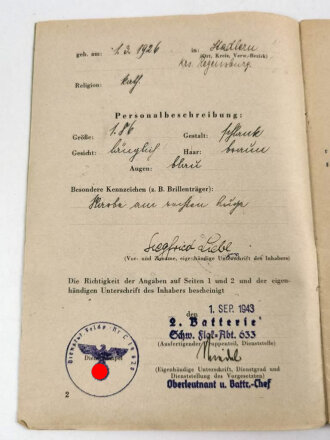 geb. am: 1.3.1926 in: Stadlern
(Ort, Kreis, Verw.-Bezirk)
Krs. Regensburg
Religion: kath
Personalbeschreibung:
Größe: 1.86 Gestalt: schlank
Gesicht: länglich Haar: braune
Augen: blau
Besondere Kennzeichen (z. B. Brillenträger):
Narbe am rechten Auge
Siegfried Liebl
(Vor- und Zuname, eigenhändige Unterschrift des Inhabers)
Die Richtigkeit der Angaben auf Seiten 1 und 2 und der eigen-
händigen Unterschrift des Inhabers bescheinigt
den 1. SEP. 1943
2. Batterie
Schw. Flak-Abt. 633
(Ausfertigender Truppenteil, Dienststelle)
(Eigenhändige Unterschrift, Dienstgrad und
Dienststellung des Vorgesetzten)
Oberleutnant u. Battr.-Chef
2